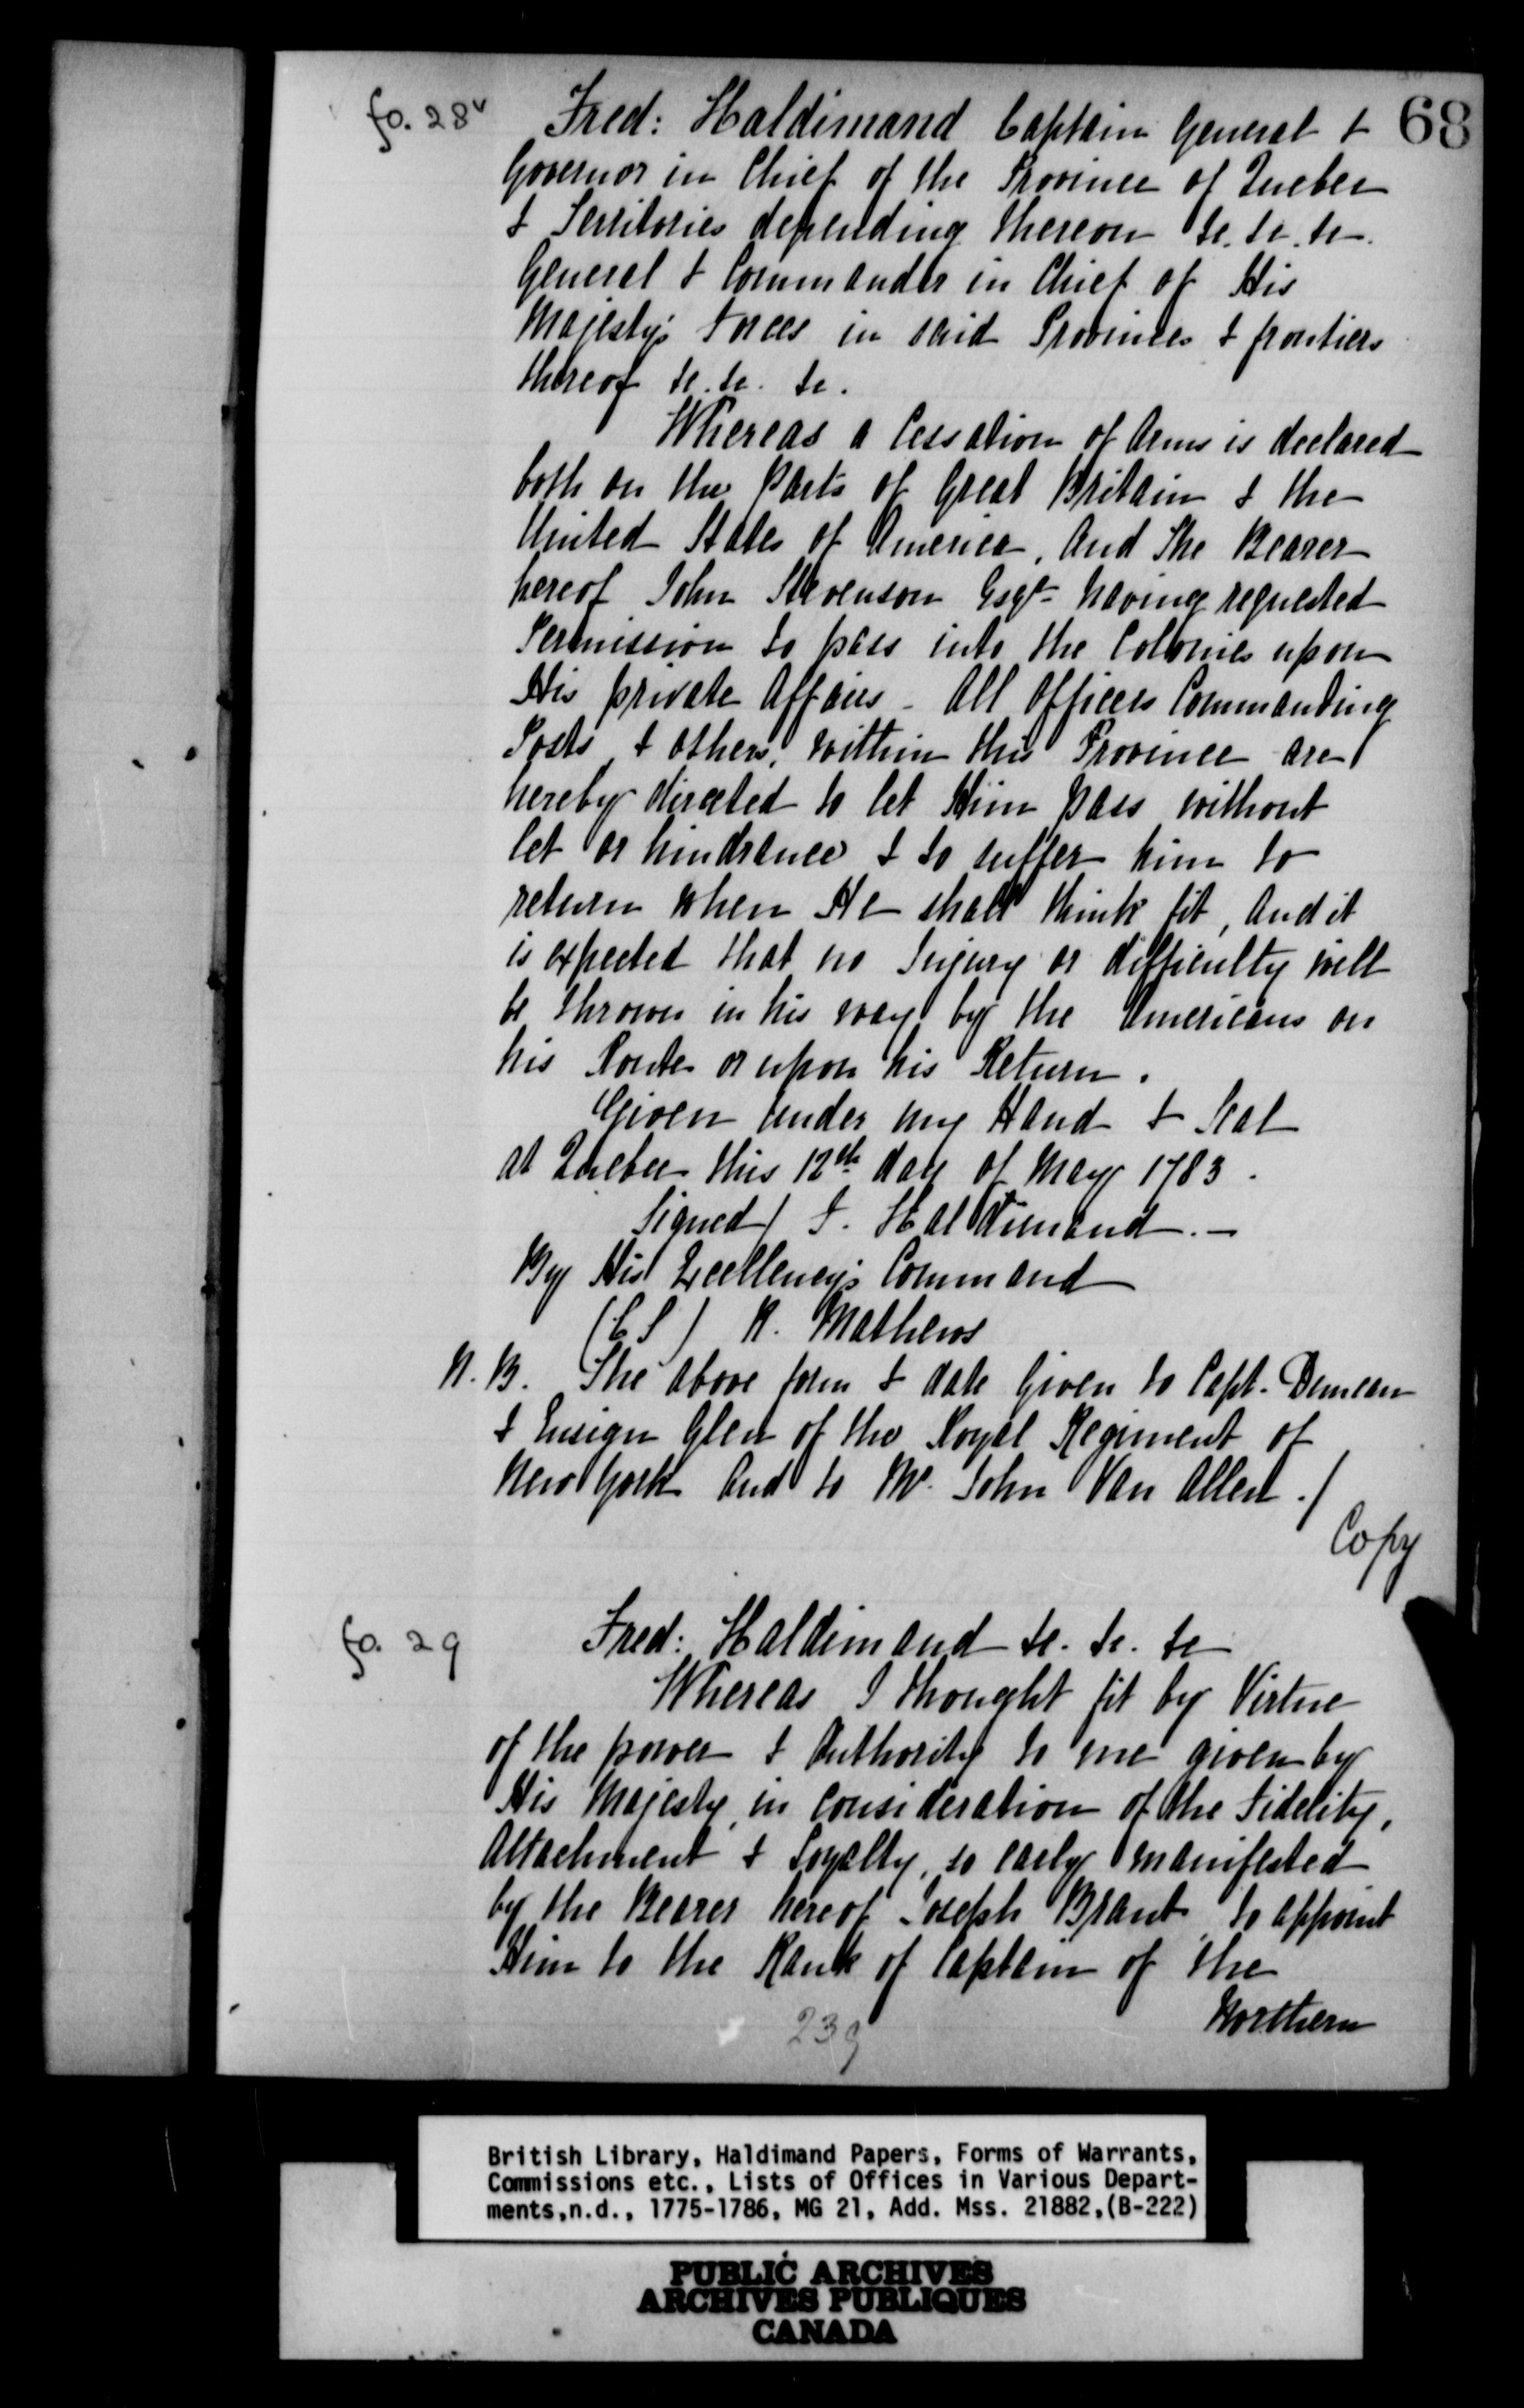 fo. 28v
68
Fred: Haldimand Captain General &
Governor in Chief of the Province of Quebec
& Territories depending thereon &c. &c. &c.
General & Commander in Chief of His
Majesty's Forces in said Province & frontiers
thereof &c. &c. &c.
Whereas a Cessation of Arms is declared
both on the parts of Great Britain & the
United States of America, And The Bearer
hereof John Stevenson Esqr having requested
Permission to pass into the Colonies upon
His private Affairs - All Officers Commanding
Posts, & others, within this Province are
hereby directed to let Him pass without
let or hindrance & to suffer him to
return when He shall think fit, And it
is expected that no Injury or difficulty will
be thrown in his way by the Americans on
his Route or upon his Return.
Given under my Hand & Seal
at Quebec this 12th day of May 1783.
Signed/ F. Haldimand.-
By His Excellency's Command
(C S) R. Mathews
N.B. The above form & date Given to Capt. Duncan
& Ensign Glen of the Royal Regiment of
New York And to Mr. John Van Allen./
Copy
fo. 29
Fred: Haldimand &c. &c. &c
Whereas I thought fit by Virtue
of the power & Authority to me given by
His Majesty, in Consideration of the Fidelity,
Attachment & Loyalty, so early manifested
by the Bearer hereof Joseph Brant, to appoint
Him to the Rank of Captain of the
Northern
239
British Library, Haldimand Papers, Forms of Warrants,
Commissions etc., Lists of Offices in Various Depart-
ments,n.d., 1775-1786, MG 21, Add. Mss. 21882,(B-222)
PUBLIC ARCHIVES
ARCHIVES PUBLIQUES
CANADA